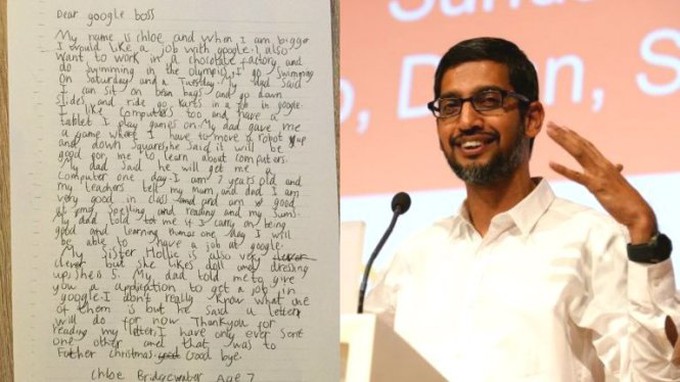 Dear google boss
My name is Chloe and when I am bigger
I would like a job with google. I also
want to work in a chocolate factory and
do swimming in the olympics. I go swimming
on Saturday and a Tuesday. My dad said
I can sit on bean bags and go down
slides and ride go karts in a job in google.
I like computers too and have a
tablet I play games on. My dad gave me
a game where I have to move a robot up
and down squares, he said it will be
good for me to learn about computers.
My dad said he will get me a
computer one day. I am 7 years old and
my teachers tell my mum and dad I am
very good in class and am good
at my spelling and reading and my sums.
My dad told me if I carry on being
good and learning things one day I will
be able to have a job at google.
My sister Hollie is also very
clever but she likes doll and dressing
up, she is 5. My dad told me to give
you a application to get a job in
google. I don't really know what one
of them is but he said a letter
will do for now. Thankyou for
reading my letter, I have only ever sent
one other and that was to
Father christmas. Good bye.
Chloe Bridgewater Age 7
Sunda
o, D an, S